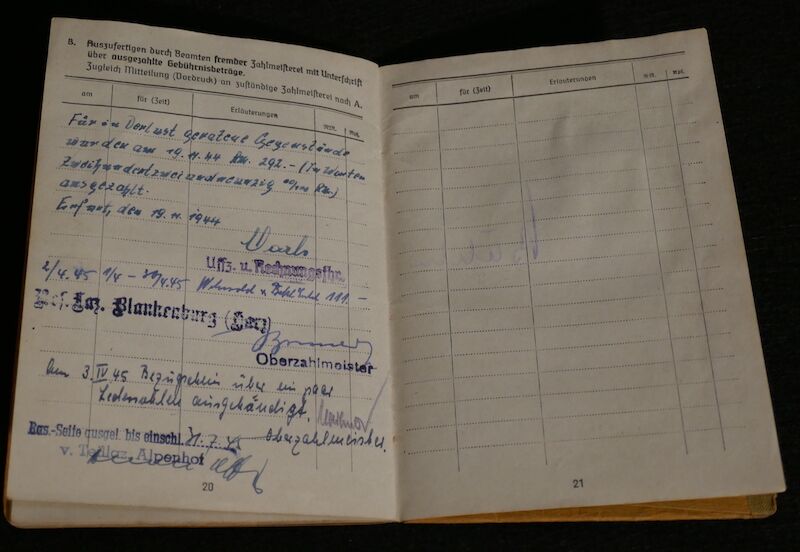 B. Auszufertigen durch Beamten fremder Zahlmeisterei mit Unterschrift
über ausgezahlte Gebührnisbeträge.
Zugleich Mitteilung (Vordruck) an zuständige Zahlmeisterei nach A.
am für (Zeit) Erläuterungen RM. Rpf.
Für in Verlust geratene Gegenstände
wurden am 19.11.44 RM. 292.- (in Worten
Zweihundertzweiundneunzig RM.)
ausgezahlt.
Erfurt, den 19.11.1944
Uffz. u. Rechnungsfhr.
2/4.45 1/4 - 30/4.45 Wehrsold 111.-
Res. Laz. Blankenburg (Harz)
Oberzahlmeister
Am 3. IV 45 Bezugschein über ein paar
Ledersohlen ausgehändigt.
Oberzahlmeister.
Bas.-Seife ausgel. bis einschl. 31.7.45
v. Teillaz. Alpenhof
20
am für (Zeit) Erläuterungen
21